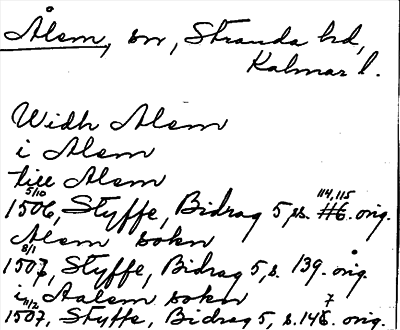 Ålem, sn, Stranda hd,
Kalmar l.
Widh Alem
i Alem
till Alem
5/10 1506, Styffe, Bidrag 5, s. 114, 115 orig.
Alem sokn
8/1 1507, Styffe, Bidrag 5, s. 139. orig.
i Aalem sokn
11/2 1507, Styffe, Bidrag 5, s. 147. orig.